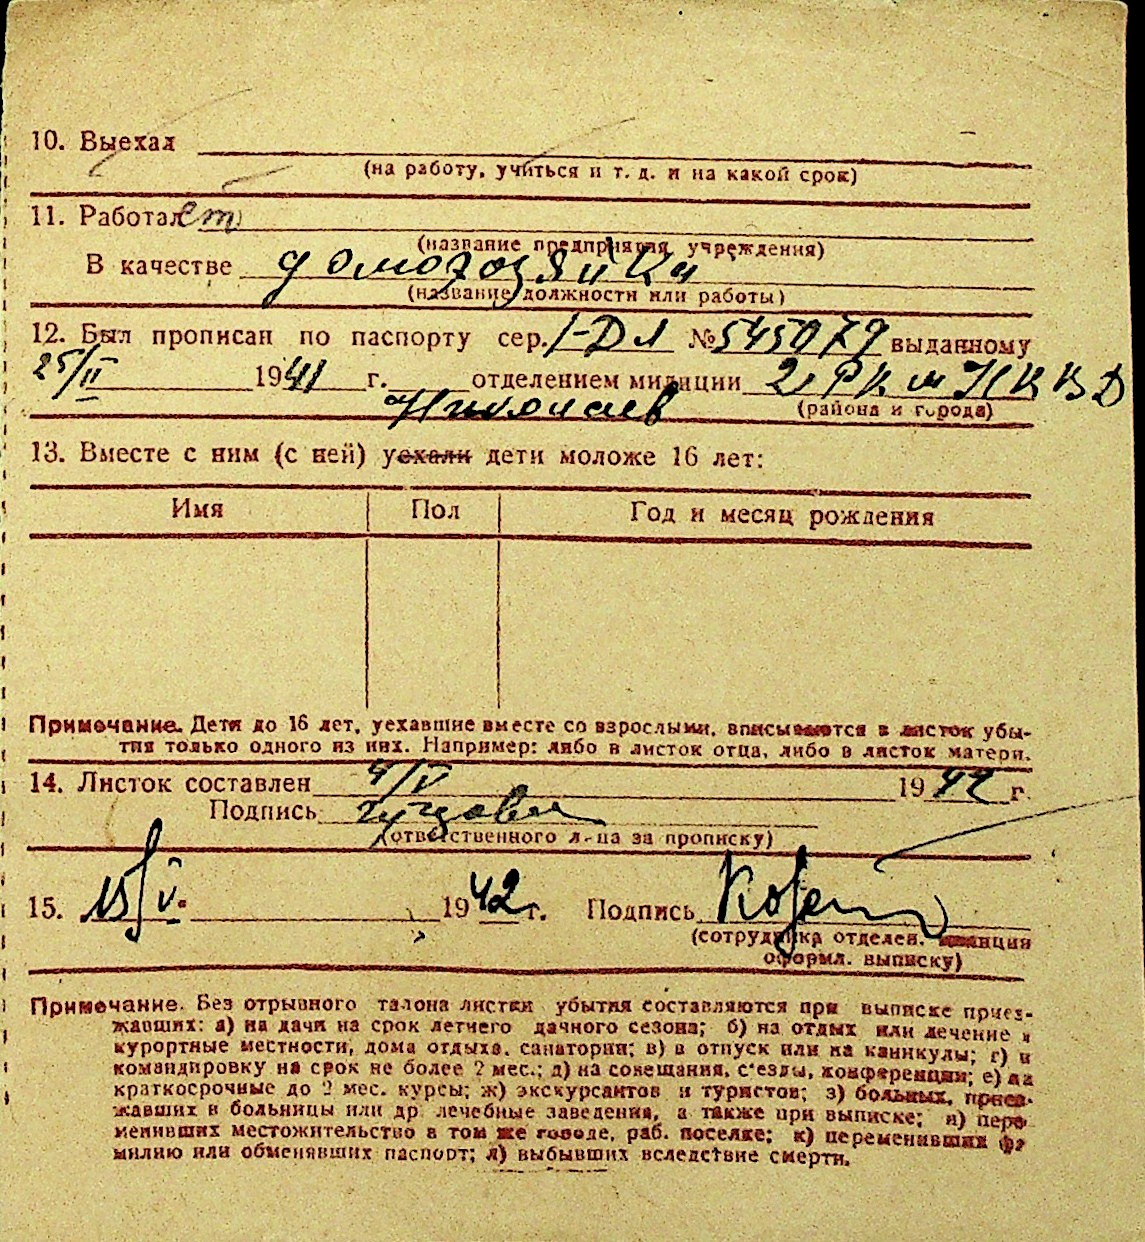 10. Выехал
(на работу, учиться и т. д. и на какой срок)
11. Работает
(название предприятия, учреждения)
В качестве домохозяйки
(название должности или работы)
12. Был прописан по паспорту сер. I-ДЛ № 545079 выданному
25/II 1941 г. отделением милиции 2 РКМ НКВД
(района и города)
Николаев
13. Вместе с ним (с ней) уехали дети моложе 16 лет:
Имя Пол Год и месяц рождения
Примечание. Дети до 16 лет, уехавшие вместе со взрослыми, вписываются в листок убы-
тия только одного из них. Например: либо в листок отца, либо в листок матери.
14. Листок составлен 4/V 1942 г.
Подпись
(ответственного лица за прописку)
15. 15/V. 1942 г. Подпись
(сотрудника отделен. милиции
оформл. выписку)
Примечание. Без отрывного талона листки убытия составляются при выписке приез-
жавших: а) на дачи на срок летнего дачного сезона; б) на отдых или лечение в
курортные местности, дома отдыха, санатории; в) в отпуск или на каникулы; г) в
командировку на срок не более 2 мес.; д) на совещания, съезды, конференции; е) на
краткосрочные до 2 мес. курсы; ж) экскурсантов и туристов; з) больных, приез-
жавших в больницы или др лечебные заведения, а также при выписке; и) пере
менивших местожительство в том же городе, раб. поселке; к) переменивших фа
милию или обменявших паспорт; л) выбывших вследствие смерти.